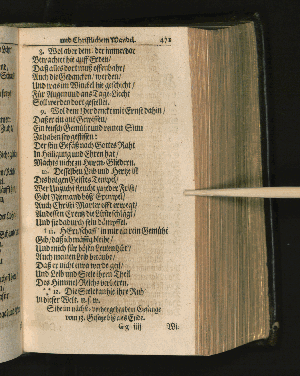 und Christlichem Wandel. 471
8. Wol aber dem, der immerdar
Betrachtet hie auff Erden/
Daß alles dort muß offenbahr/
Auch die Gedancken/ werden/
Und was im Winckel hie geschicht/
Für Augen und ans Tages-Liecht
Soll werden dort gestellet.
9. Wol dem/ der denckt mit Ernst dahin/
Daß er ein gut Gewissen/
Ein keusch Gemüht und reinen Sinn
Zu haben sey geflissen:
Der sein Gefäß nach Gottes Raht
In Heiligung und Ehren hat/
Machts nicht zu Huren-Gliedern.
10. Desselben Leib und Hertz ist
Des heilgen Geistes Tempel/
Wer Unzucht fleucht zu jeder Frist/
Gibt Niemand böß Exempel/
Auch Christi Marter offt erwegt/
An dessen Creutz die Lüste schlägt/
Und sie dadurch sein dämpffet.
11. HErr/ schaff' in mir ein rein Gemüht
Gib/ daß ich mässig bleibe/
Und mich für bösen Leuten hüt'/
Auch meinen Leib betäube/
Daß er nicht etwa werde geil/
Und Leib und Seele ihren Theil
Des Himmel-Reichs verlieren.
12. Die Seele an hie ihre Ruh/
in dieser Welt. u. s. w.
Siehe im nächst-vorhergehenden Gesange
vom 13. Gesetze biß ans Ende.
Gg iiij Wi.